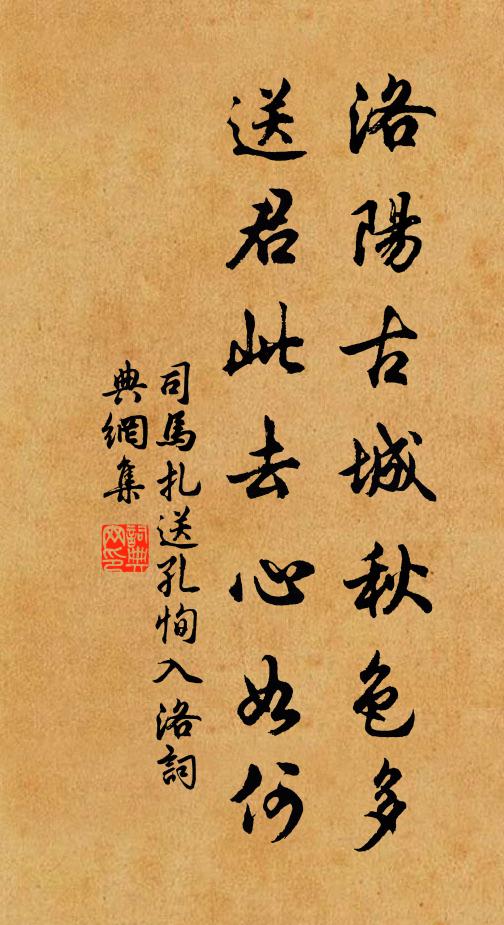 洛陽古城秋色多
送君此去心如何
司馬扎送孔恂入洛詞
典網集
詞典
网印